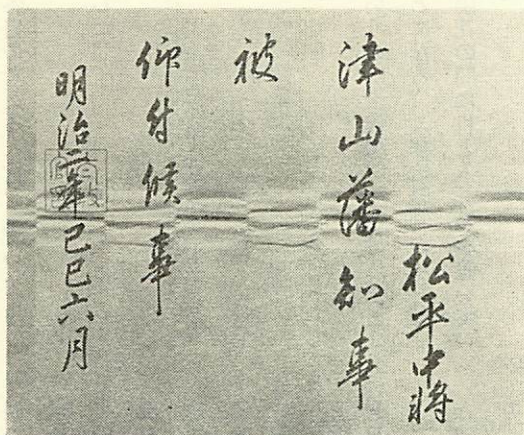 松平中将
津山藩知事
被
仰付候事
明治二年己巳六月